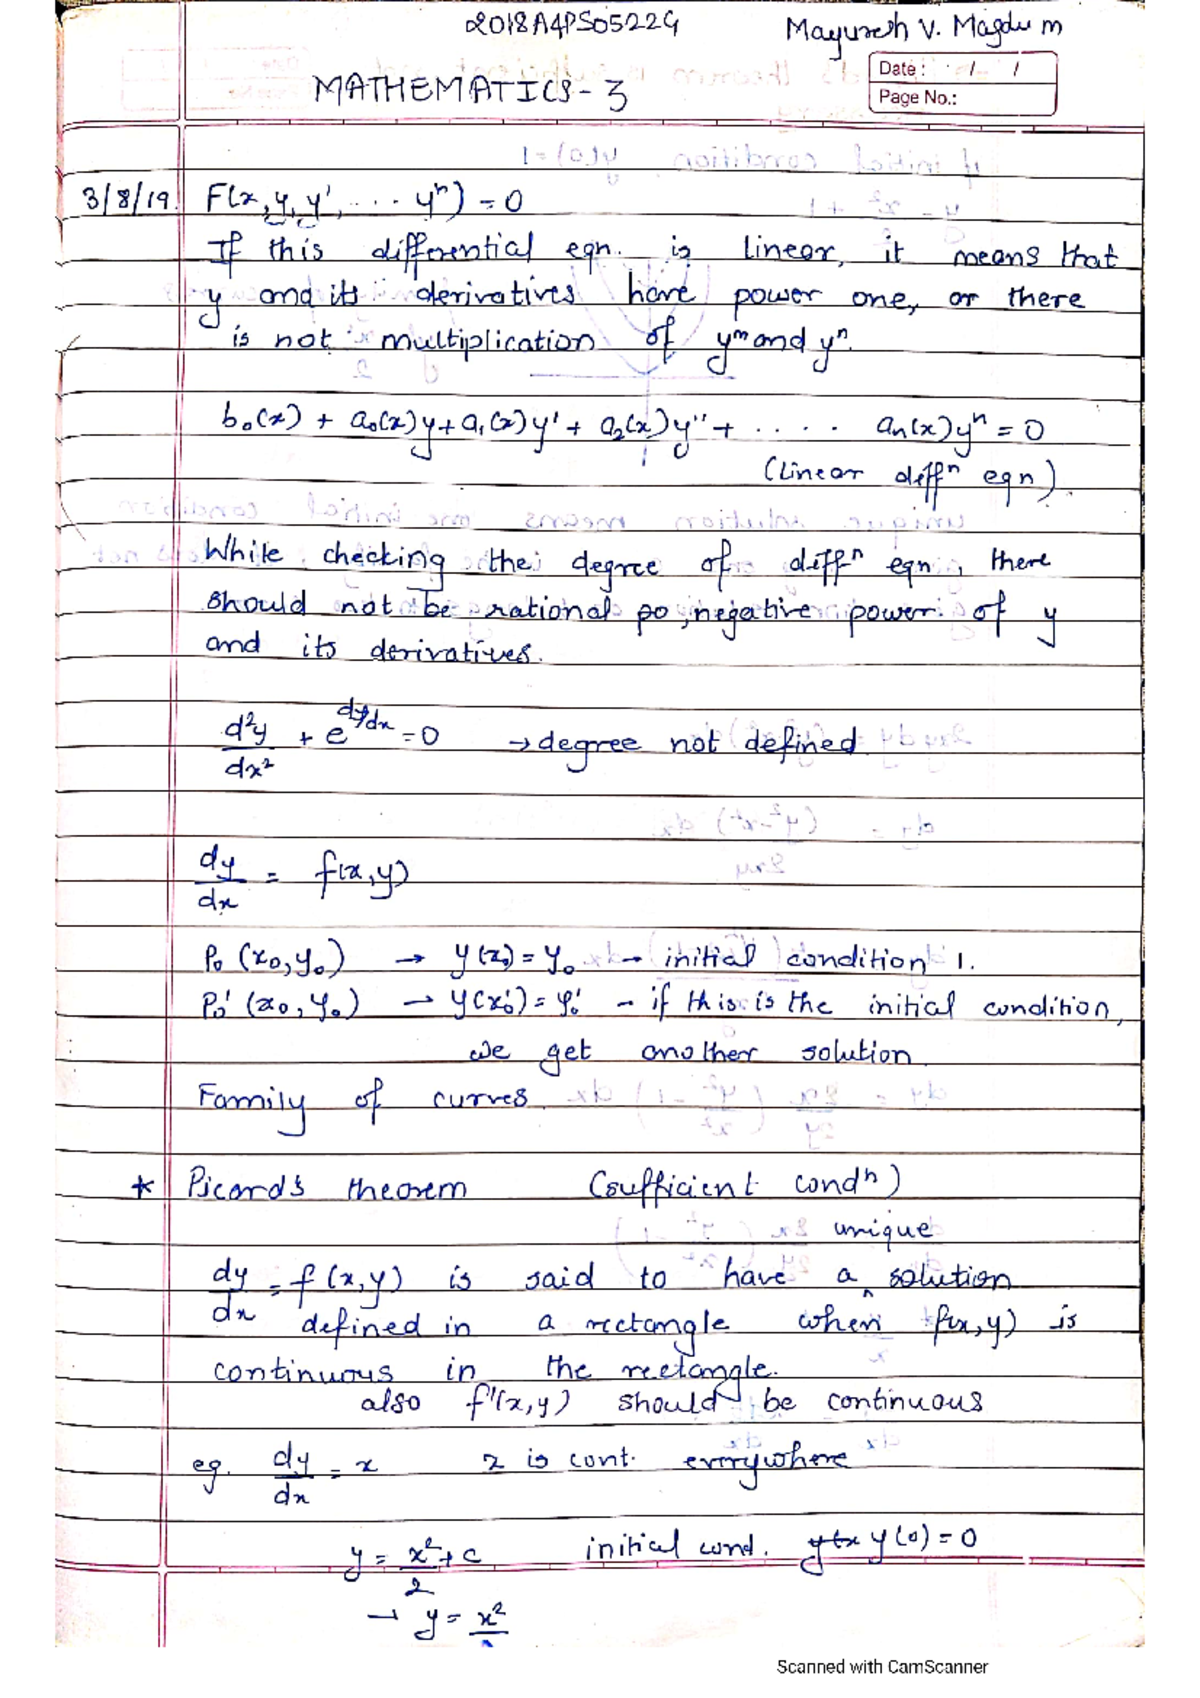 2018A4PS0522G Mayuresh V. Magdum
Date : / /
MATHEMATICS - 3
Page No.:
3/8/19. F(x, y, y', .... yⁿ) = 0
If this differential eqn. is linear, it means that
y and its derivatives have power one, or there
is not multiplication of yᵐ and yⁿ.
b₀(x) + a₀(x)y + a₁(x)y' + a₂(x)y'' + ..... aₙ(x)yⁿ = 0
(Linear diffⁿ eqn).
While checking the degree of diffⁿ eqn, there
should not be rational po, negative power of y
and its derivatives.
d²y/dx² + e^(dy/dx) = 0 → degree not defined
dy/dx = f(x,y)
P₀ (x₀, y₀) → y(x₀) = y₀ → initial condition 1.
P₀' (x₀, y₀) → y(x₀') = y₀' - if this is the initial condition,
we get another solution
Family of curves
* Picard's theorem (sufficient condⁿ)
unique
dy/dx = f(x,y) is said to have a ^ solution
defined in a rectangle when f(x,y) is
continuous in the rectangle.
also f'(x,y) should be continuous
eg. dy/dx = x x is cont. everywhere
y = x²/2 + c initial cond. y(0) = 0
→ y = x²/2
Scanned with CamScanner